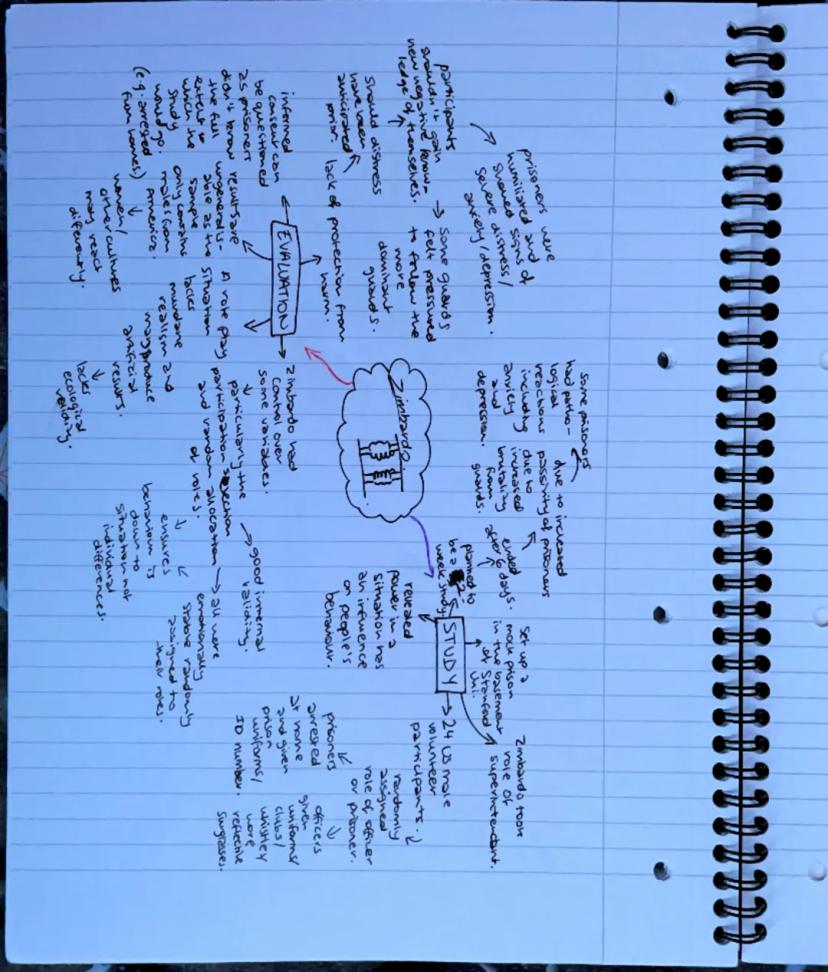 Zimbardo.
STUDY
Set up a
mock prison
in the basement
of Stanford
Uni.
Zimbardo took
role of
superintendant.
24 US male
volunteer
participants.
randomly
assigned
role of officer
or prisoner.
prisoners
arrested
at home
and given
prison
uniforms/
ID number.
officers
given
uniforms/
clubs/
whistles
wore
reflective
sunglasses.
revealed
power in a
situation has
an influence
on people's
behaviour.
planned to
be a 2
week study
ended
after 6 days.
due to increased
passivity of prisoners
due to
increased
brutality
from
guards.
some prisoners
had patho-
logical
reactions
including
anxiety
and
depression.
EVALUATION
lack of protection from
harm.
Some guards
felt pressured
to follow the
more
dominant
guards.
prisoners were
humiliated and
showed signs of
severe distress/
anxiety/depression.
participants
shouldn't gain
new negative know-
ledge of themselves.
Should distress
have been
anticipated
prior.
informed
consent can
be questioned
as prisoners
didn't know
the full
extent to
which the
study
would go.
(e.g. arrested
from homes)
results are
ungeneralis-
able as the
sample
only contains
males from
America.
women/
other cultures
may react
differently.
A role play
situation
lacks
mundane
realism and
may produce
artificial
results.
lacks
ecological
validity.
Zimbardo had
control over
some variables.
particularly the
participation selection
and random allocation
of roles.
good internal
validity.
all were
emotionally
stable randomly
assigned to
their roles.
ensures
behaviour is
down to
situation not
individual
differences.